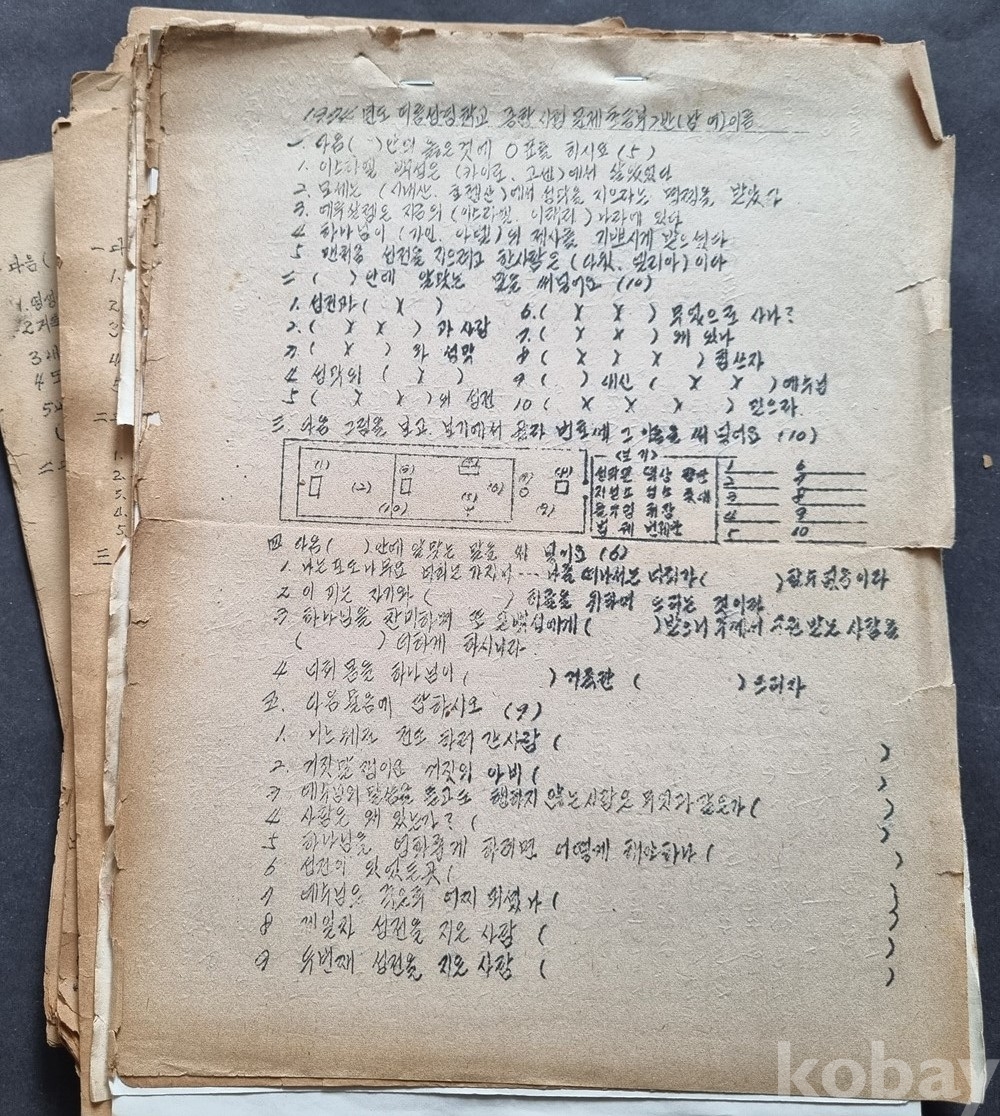 년도 여름성경학교 종합시험문제 초등부 반(남 여)이름
一. 다음( )안의 옳은것에 O표를 하시요 (5)
1. 이스라엘 백성은 (카이로, 고센)에서 살았었다
2. 모세는 (시내산, 호렙산)에서 성막을 지으라는 명령을 받았다
3. 예루살렘은 지금의 (이스라엘, 이락) 나라에 있다
4 하나님이 (가인, 아벨)의 제사를 기쁘시게 받으셨다
5 맨처음 성전을 지으려고 한사람은 (다윗, 엘리야)이다
二 ( ) 안에 알맞는 말을 써넣어요 (10)
1. 성전과 ( X )
2. ( X X ) 과 사람
3 ( X ) 와 성막
4 성막의 ( X )
5 ( X X )의 성전
6. ( X X ) 무엇으로 사나?
7. ( X ) 왜 있나
8 ( X X X ) 힘쓰자
9 ( ) 대신 ( X X ) 예수님
10 ( X X X ) 믿으라.
三. 다음 그림을 보고 보기에서 골라 번호에 그 이름을 써 넣어요 (10)
(1)
(2)
(10)
(보기)
성막문 떡상
지성소 성소 촛대
물두멍 휘장
법궤 번제단
1 6
2 7
3 8
4 9
5 10
四 다음( )안에 알맞는 말을 써 넣어요 (6)
1. 나는 포도나무요 너희는 가지니 --- 나를 떠나서는 너희가 ( )할수 없음이라
2 이 피는 자기와 ( ) 허물을 위하여 드리는 것이라
3 하나님을 찬미하며 또 온백성에게 ( )받으니 주께서 구원 받는 사람을
( ) 더하게 하시니라.
4 너희 몸을 하나님이 ( ) 거룩한 ( ) 드리라
五. 다음 물음에 답하시오 (9)
1. 니느웨로 전도 하러 간사람 ( )
2. 거짓말쟁이요 거짓의 아비 ( )
3 예수님의 말씀을 듣고도 행하지 않는사람은 무엇과 같은가 ( )
4 사람은 왜 있는가? ( )
5 하나님을 영화롭게 하려면 어떻게 해야하나 ( )
6 성전이 있었든곳 ( )
7 예수님은 죽은후 어찌 되셨나 ( )
8 제일차 성전을 지은 사람 ( )
9 두번째 성전을 지은 사람 ( )
kobay